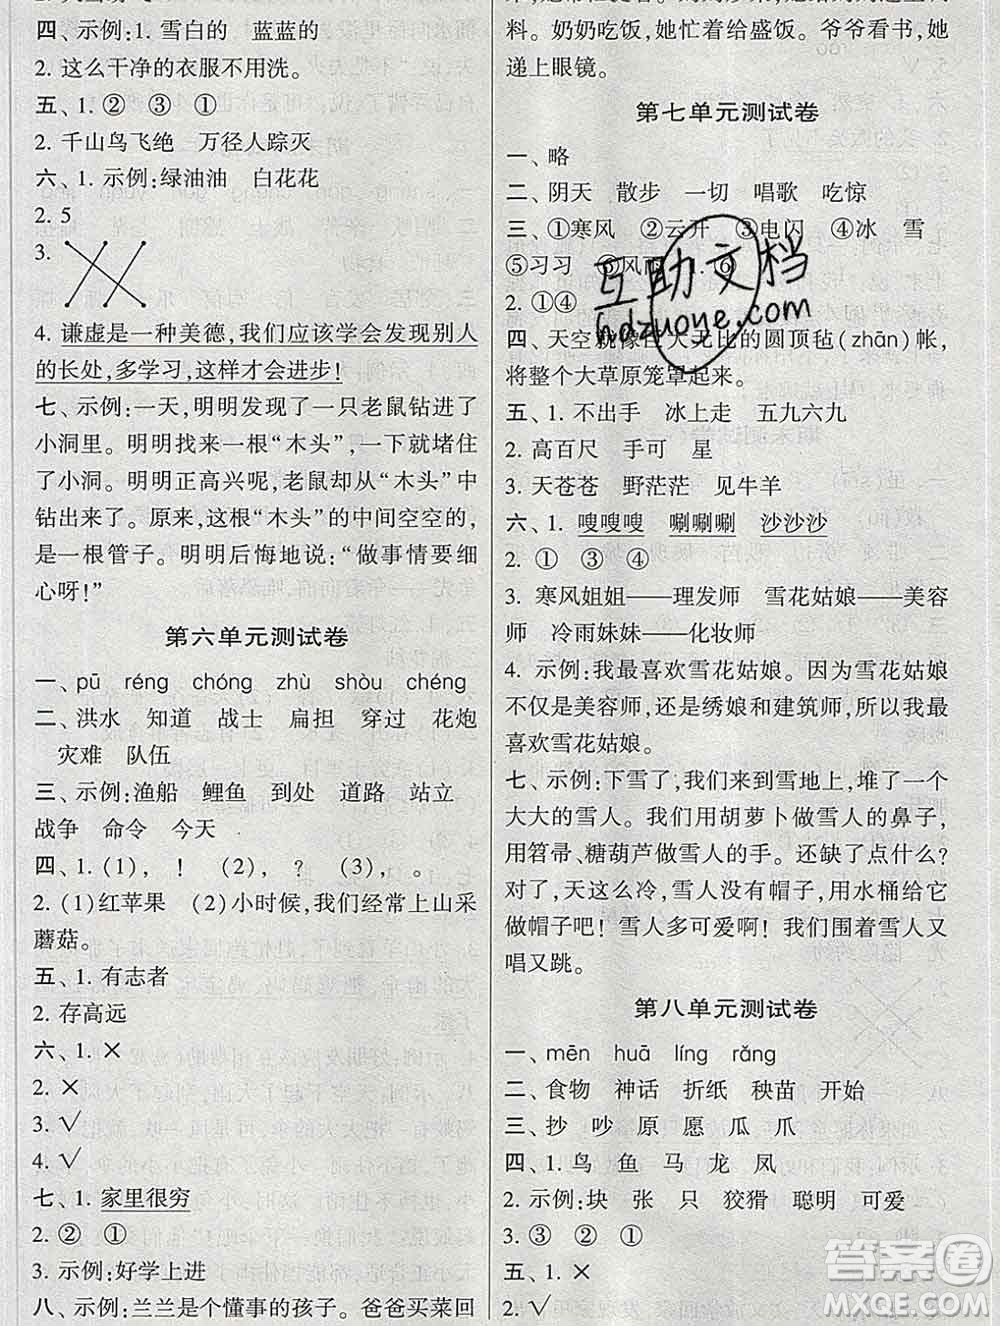 四、示例:1. 雪白的　蓝蓝的
2. 这么干净的衣服不用洗。
五、1. ② ③ ①
2. 千山鸟飞绝　万径人踪灭
六、1. 示例:绿油油　白花花
2. 5
3.
4. 谦虚是一种美德,我们应该学会发现别人
的长处,多学习,这样才会进步!
七、示例:一天,明明发现了一只老鼠钻进了
小洞里。明明找来一根“木头”,一下就堵住
了小洞。明明正高兴呢,老鼠却从“木头”中
钻出来了。原来,这根“木头”的中间空空的,
是一根管子。明明后悔地说:“做事情要细
心呀!”
第六单元测试卷
一、pū　réng　chóng　zhù　shòu　chéng
二、洪水　知道　战士　扁担　穿过　花炮
灾难　队伍
三、示例:渔船　鲤鱼　到处　道路　站立
战争　命令　今天
四、1. (1)，　！　(2)，　？　(3)，　。
2. (1)红苹果　(2)小时候,我们经常上山采
蘑菇。
五、1. 有志者
2. 存高远
六、1. ×
2. ×
3. √
4. √
七、1. 家里很穷
2. ② ①
3. 示例:好学上进
八、示例:兰兰是个懂事的孩子。爸爸买菜回
料。奶奶吃饭,她忙着给盛饭。爷爷看书,她
递上眼镜。
第七单元测试卷
一、略
二、阴天　散步　一切　唱歌　吃惊
三、①寒风　②云开　③电闪　④冰　雪
⑤习习　⑥风 1. ⑥
2. ①④
四、天空就像巨大无比的圆顶毡(zhān)帐,
将整个大草原笼罩起来。
五、1. 不出手　冰上走　五九六九
2. 高百尺　手可　星
3. 天苍苍　野茫茫　见牛羊
六、1. 嗖嗖嗖　唰唰唰　沙沙沙
2. ① ③ ④
3. 寒风姐姐——理发师　雪花姑娘——美容
师　冷雨妹妹——化妆师
4. 示例:我最喜欢雪花姑娘。因为雪花姑娘
不仅是美容师,还是绣娘和建筑师,所以我最
喜欢雪花姑娘。
七、示例:下雪了,我们来到雪地上,堆了一个
大大的雪人。我们用胡萝卜做雪人的鼻子,
用笤帚、糖葫芦做雪人的手。还缺了点什么?
对了,天这么冷,雪人没有帽子,用水桶给它
做帽子吧!雪人多可爱啊!我们围着雪人又
唱又跳。
第八单元测试卷
一、mēn　huā　líng　rǎng
二、食物　神话　折纸　秧苗　开始
三、抄　吵　原　愿　瓜　爪
四、1. 鸟　鱼　马　龙　凤
2. 示例:块　张　只　狡猾　聪明　可爱
3. ③ ② ①
五、1. ×
2. √
互助文档
hdzuoye.com
答案圈
MXQE.COM